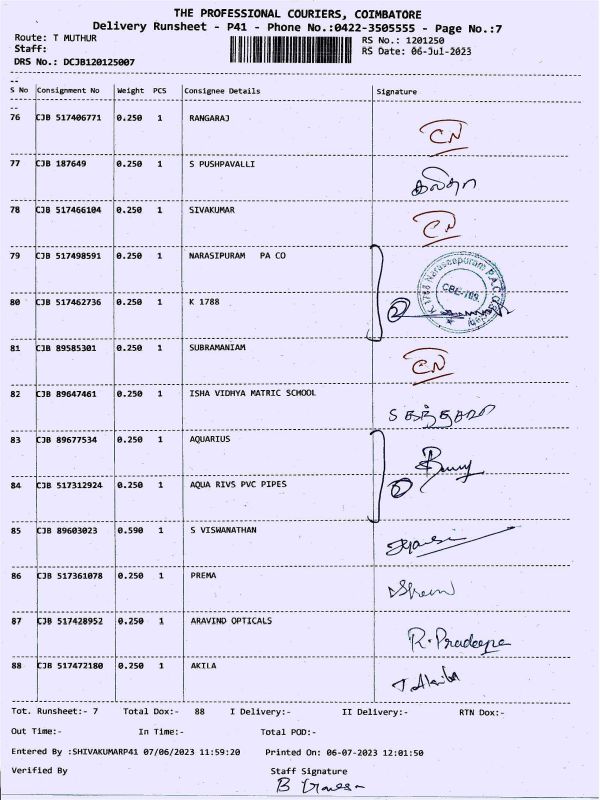 THE PROFESSIONAL COURIERS, COIMBATORE
Delivery Runsheet - P41 - Phone No.:0422-3505555 - Page No.:7
Route: T MUTHUR RS No.: 1201250
Staff: RS Date: 06-Jul-2023
DRS No.: DCJB120125007
S No Consignment No Weight PCS Consignee Details Signature
76 CJB 517406771 0.250 1 RANGARAJ CN
77 CJB 187649 0.250 1 S PUSHPAVALLI
78 CJB 517466104 0.250 1 SIVAKUMAR CN
79 CJB 517498591 0.250 1 NARASIPURAM PA CO
80 CJB 517462736 0.250 1 K 1788 2
81 CJB 89585301 0.250 1 SUBRAMANIAM CN
82 CJB 89647461 0.250 1 ISHA VIDHYA MATRIC SCHOOL
83 CJB 89677534 0.250 1 AQUARIUS
84 CJB 517312924 0.250 1 AQUA RIVS PVC PIPES 2
85 CJB 89603023 0.590 1 S VISWANATHAN
86 CJB 517361078 0.250 1 PREMA
87 CJB 517428952 0.250 1 ARAVIND OPTICALS R. Pradeepa
88 CJB 517472180 0.250 1 AKILA
Tot. Runsheet:- 7 Total Dox:- 88 I Delivery:- II Delivery:- RTN Dox:-
Out Time:- In Time:- Total POD:-
Entered By :SHIVAKUMARP41 07/06/2023 11:59:20 Printed On: 06-07-2023 12:01:50
Verified By Staff Signature